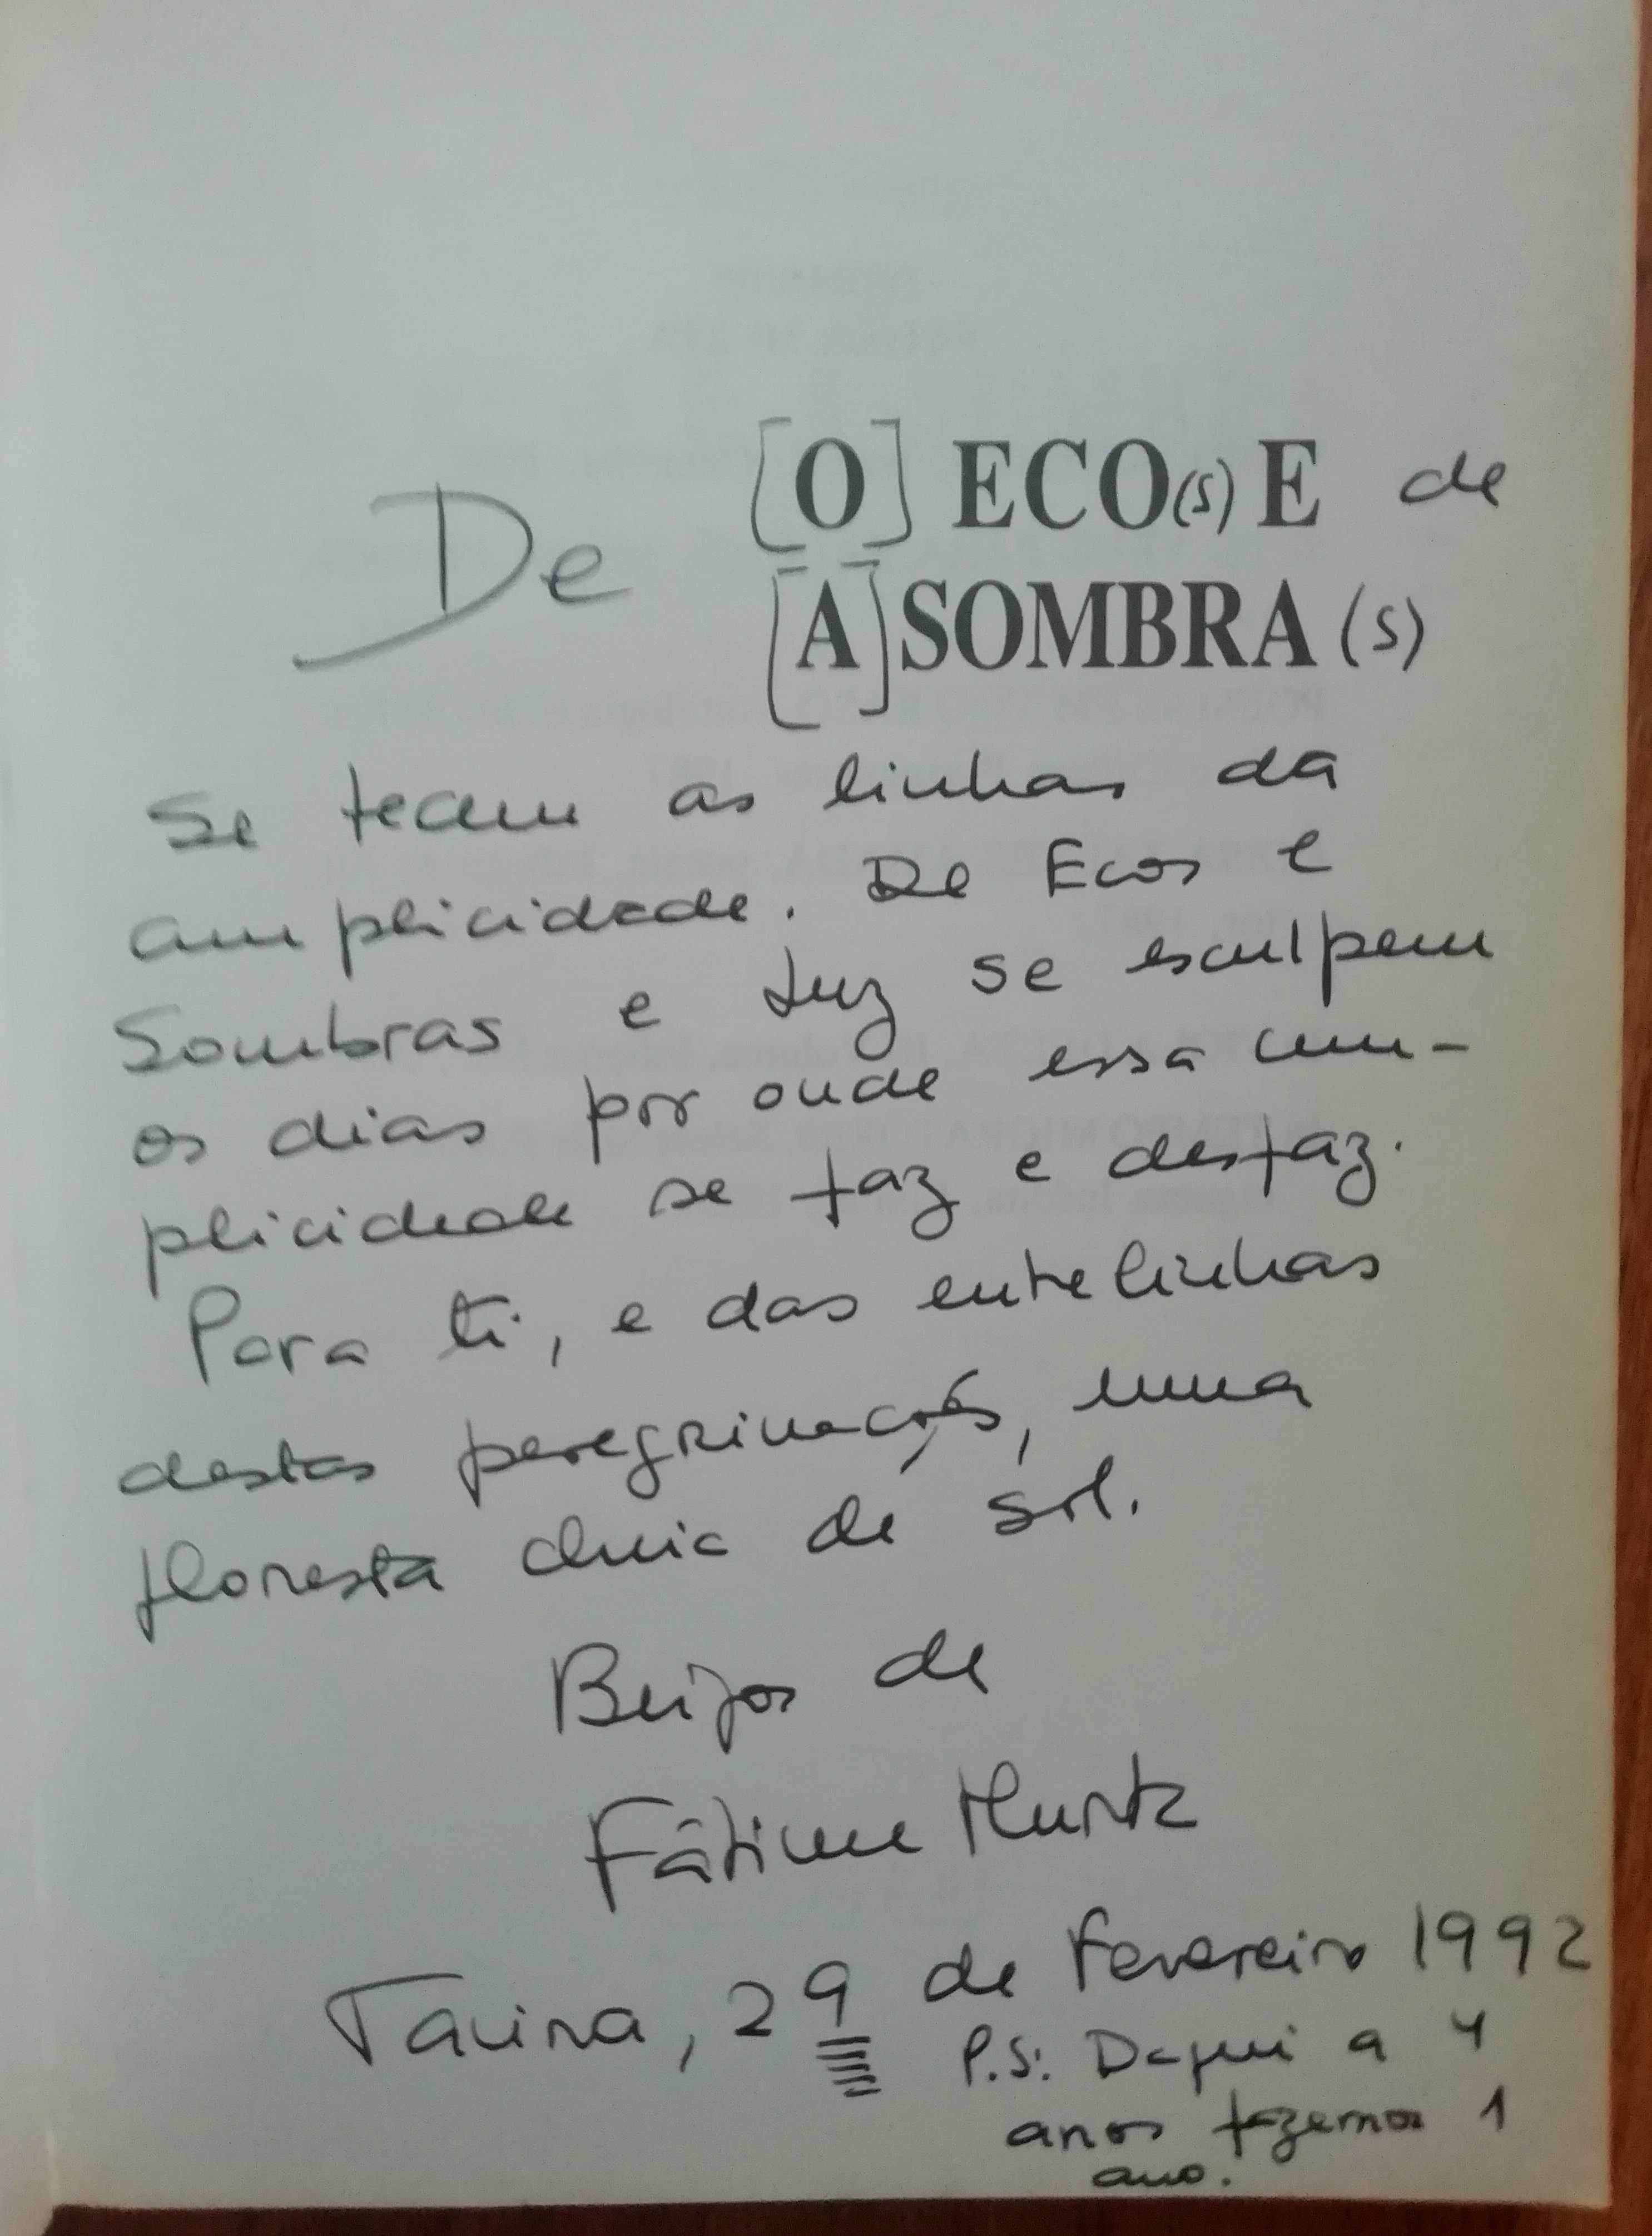 De [O] ECO(s) E de
[A] SOMBRA (s)
Se tecem as linhas da
cumplicidade. De Ecos e
Sombras e Luz se esculpem
os dias por onde essa cum-
plicidade se faz e desfaz.
Para ti, e das entrelinhas
destas peregrinações, uma
floresta cheia de sol.
Beijos de
Fátima
Tavira, 29 de Fevereiro 1992
P.S: Daqui a 4
anos fazemos 1
ano.